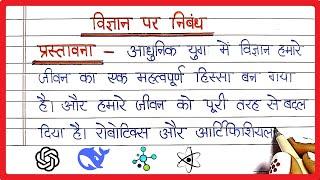 विज्ञान पर निबंध
प्रस्तावना - आधुनिक युग में विज्ञान हमारे
जीवन का एक महत्वपूर्ण हिस्सा बन गया
है। और हमारे जीवन को पूरी तरह से बदल
दिया है। रोबोटिक्स और आर्टिफिशियल